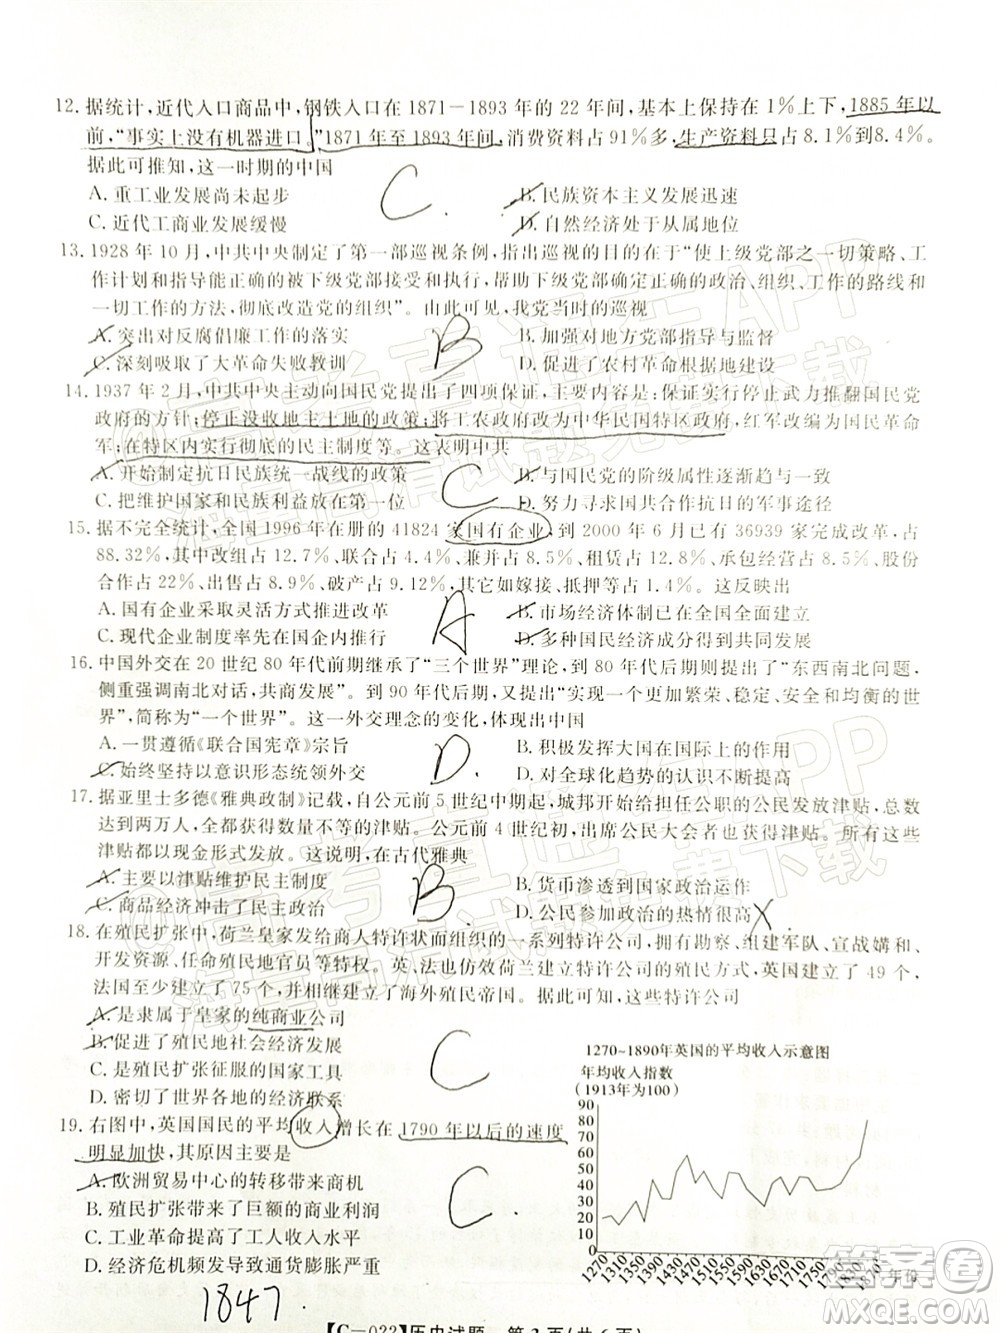 12. 据统计，近代入口商品中，钢铁入口在 1871－1893 年的 22 年间，基本上保持在 1％上下，1885 年以
前，“事实上没有机器进口。”1871 年至 1893 年间，消费资料占 91％多，生产资料只占 8.1％到 8.4％。
据此可推知，这一时期的中国
A. 重工业发展尚未起步 B. 民族资本主义发展迅速
C. 近代工商业发展缓慢 D. 自然经济处于从属地位
C
13. 1928 年 10 月，中共中央制定了第一部巡视条例，指出巡视的目的在于“使上级党部之一切策略、工
作计划和指导能正确的被下级党部接受和执行，能正确的转变党的政治、组织、工作的路线和
一切工作的方法，彻底改造党的组织”。由此可见，我党当时的巡视
A. 突出对反腐倡廉工作的部署 B. 加强对地方党部指导与监督
C. 深刻吸取了大革命失败教训 D. 促进了农村革命根据地建设
B
14. 1937 年 2 月，中共中央主动向国民党提出了四项保证，主要内容是：保证实行停止武力推翻国民党
政府的方针；停止没收地主土地的政策；将工农政府改为中华民国特区政府，红军改编为国民革命
军；在特区内实行彻底的民主制度等。这表明中共
A. 开始制定抗日民族统一战线的政策 B. 与国民党的阶级属性逐渐趋与一致
C. 把维护国家和民族利益放在第一位 D. 努力寻求国共合作抗日的军事途径
C
15. 据不完全统计，全国 1996 年在册的 41824 家国有企业，到 2000 年 6 月已有 36939 家完成改革，占
88.32％，其中改组占 12.7％、联合占 4.4％、兼并占 8.5％、租赁占 12.8％、承包经营占 8.5％、股份
合作占 22％、出售占 8.9％、破产占 9.12％，其它如嫁接、抵押等占 13.1％。这反映出
A. 国有企业采取灵活方式推进改革 B. 市场经济体制已在全国全面建立
C. 现代企业制度率先在国企内推行 D. 多种国民经济成分得到共同发展
A
16. 中国外交在 20 世纪 80 年代前期继承了“三个世界”理论，到 80 年代后期则提出了“东西南北问题，
侧重强调南北对话，共商发展”。到 90 年代后期，又提出“实现一个更加繁荣、稳定、安全和均衡的世
界”，简称为“一个世界”。这一外交理念的变化，体现出中国
A. 一贯遵循《联合国宪章》宗旨 B. 积极发挥大国在国际上的作用
C. 始终坚持以意识形态统领外交 D. 对全球化趋势的认识不断提高
D.
17. 据亚里士多德《雅典政制》记载，自公元前 5 世纪中期起，城邦开始给担任公职的公民发放津贴，总数
达到两万人，全都获得数量不等的津贴。公元前 4 世纪初，出席公民大会者也获得津贴。所有这些
津贴都以现金形式发放。这说明，在古代雅典
A. 主要以津贴维护民主制度 B. 货币渗透到国家政治运作
C. 商品经济冲击了民主政治 D. 公民参加政治的热情很高
B
18. 在殖民扩张中，荷兰皇家发给商人特许状而组织的一系列特许公司，拥有勘察、组建军队、宣战媾和、
移民、任命殖民地官员等特权。英、法也仿效荷兰建立特许公司的殖民方式，英国建立了 49 个，
法国至少建立了 75 个，并以此建立了海外殖民帝国。据此可知，这些特许公司
A. 是隶属于皇家的纯商业公司
B. 促进了殖民地社会经济发展
C. 是殖民扩张征服的国家工具
D. 密切了世界各地的经济联系
C
19. 右图中，英国国民的平均收入增长在 1790 年以后的速度
明显加快，其原因主要是
A. 欧洲贸易中心的转移带来商机
B. 殖民扩张带来了巨额的商业利润
C. 工业革命提高了工人收入水平
D. 经济危机频发导致通货膨胀严重
C
1847.
1270~1890年英国的平均收入示意图
年均收入指数
(1913年为100)
90
80
70
60
50
40
30
20
10
0
1270 1310 1350 1390 1430 1470 1510 1550 1590 1630 1670 1710 1750 1790 1830 1870 年份
【C－022】历史试题 第 3 页(共 6 页)
高考直通车APP
海量高清试题免费下载
高考直通车APP
海量高清试题免费下载
答案圈
MXQE.COM